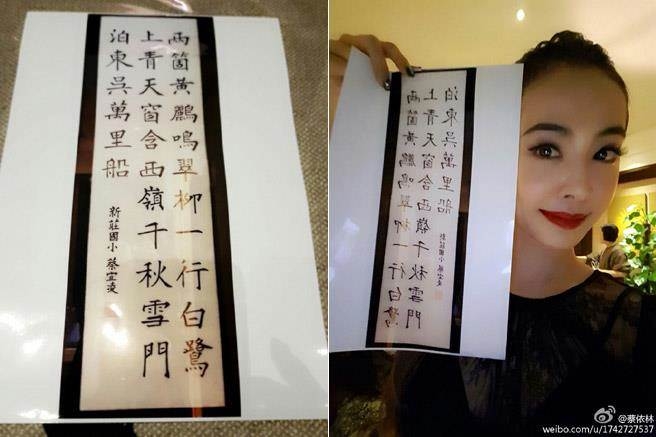 兩箇黃鸝鳴翠柳一行白鷺
上青天窗含西嶺千秋雪門
泊東吳萬里船
新莊國小 蔡宜凌
兩箇黃鸝鳴翠柳一行白鷺
上青天窗含西嶺千秋雪門
泊東吳萬里船
新莊國小 蔡宜凌
@蔡依林
weibo.com/u/1742727537